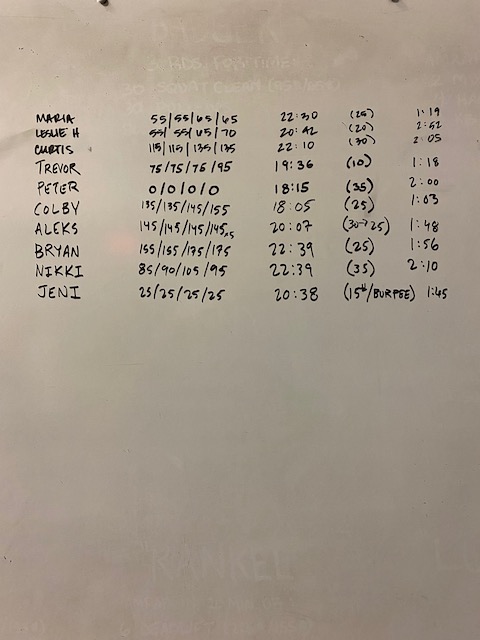 MARIA 55/55/65/65 22:30 (25) 1:19
LESLIE H 55/55/65/70 20:42 (20) 2:52
CURTIS 115/115/135/135 22:10 (30) 2:05
TREVOR 75/75/75/95 19:36 (10) 1:18
PETER 0/0/0/0 18:15 (35) 2:00
COLBY 135/135/145/155 18:05 (25) 1:03
ALEKS 145/145/145/145 20:07 (30→25) 1:48
BRYAN 155/155/175/175 22:39 (25) 1:56
NIKKI 85/90/105/95 22:39 (35) 2:10
JENI 25/25/25/25 20:38 (15#/BURPEE) 1:45
NANKEL